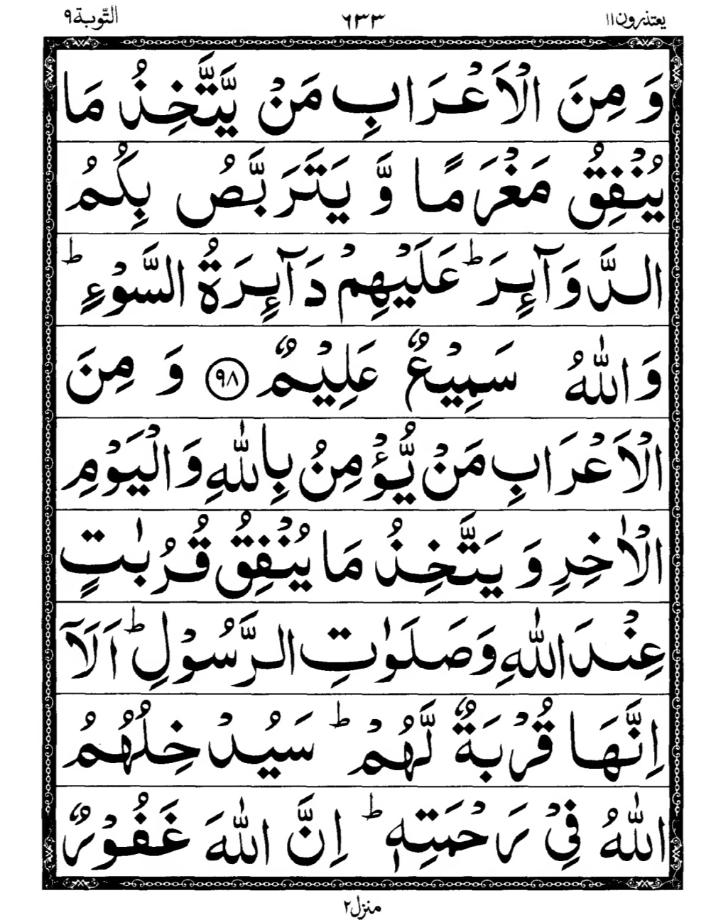 یعتذرون۱۱ ۶۳۳ التّوبة۹
وَ مِنَ الْاَعْرَابِ مَنْ یَّتَّخِذُ مَا
یُنْفِقُ مَغْرَمًا وَّ یَتَرَبَّصُ بِكُمُ
الدَّوَآئِرَ ؕ عَلَیْهِمْ دَآئِرَةُ السَّوْءِ ؕ
وَاللّٰهُ سَمِیْعٌ عَلِیْمٌ ۹۸ وَ مِنَ
الْاَعْرَابِ مَنْ یُّؤْمِنُ بِاللّٰهِ وَالْیَوْمِ
الْاٰخِرِ وَ یَتَّخِذُ مَا یُنْفِقُ قُرُبٰتٍ
عِنْدَ اللّٰهِ وَصَلَوٰتِ الرَّسُوْلِ ؕ اَلَاۤ
اِنَّهَا قُرْبَةٌ لَّهُمْ ؕ سَیُدْخِلُهُمُ
اللّٰهُ فِیْ رَحْمَتِهٖ ؕ اِنَّ اللّٰهَ غَفُوْرٌ
منزل۲